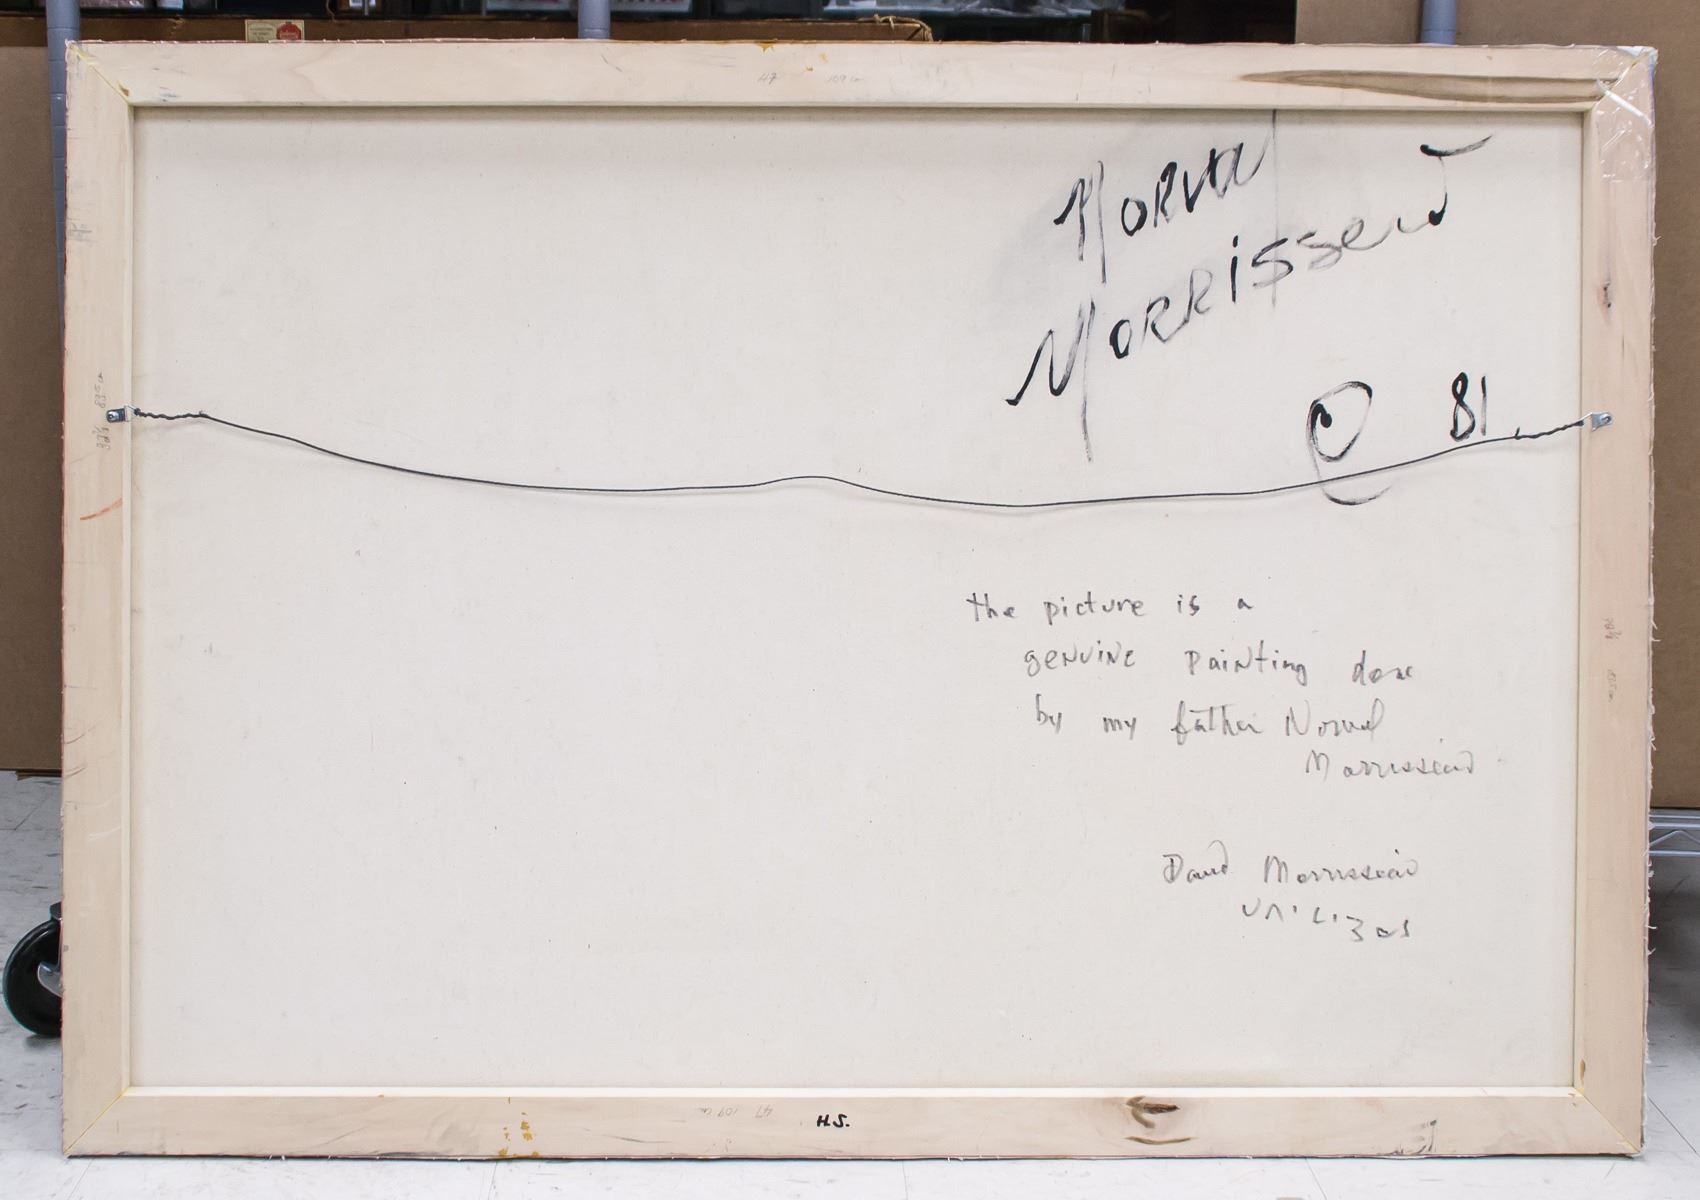 Norval
Morrisseau
© 81
the picture is a
genuine painting done
by my father Norval
Morrisseau
David Morrisseau
47 109 cm
H.S.